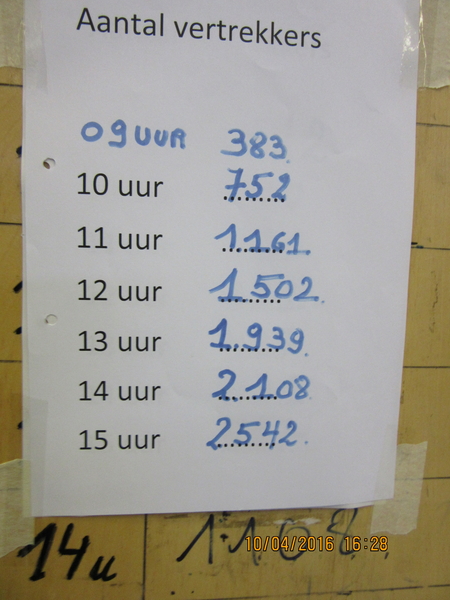 Aantal vertrekkers
09 UUR 383.
10 uur 752
11 uur 1161.
12 uur 1.502.
13 uur 1.939.
14 uur 2.108
15 uur 2542.
14u
10/04/2016 16:28